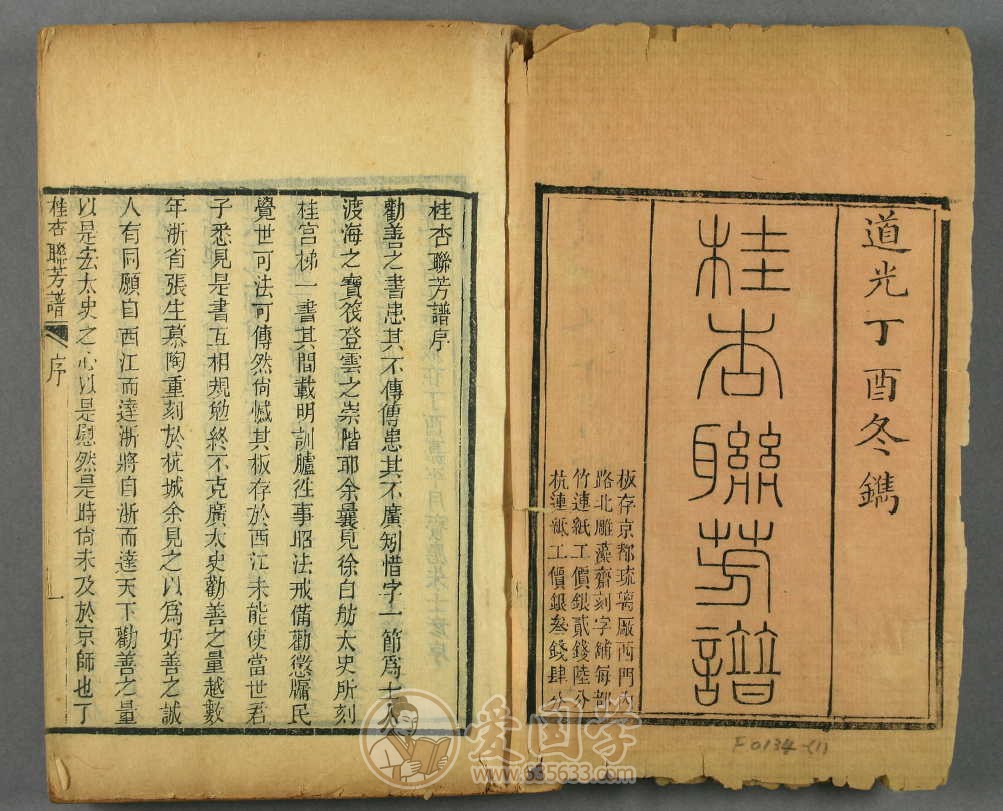 道光丁酉冬鐫
桂杏聯芳譜
板存京都琉璃厰西門內
路北雕藻齋刻字舖每部
竹連紙工價銀貳錢陸分
杭連紙工價銀叄錢肆分
桂杏聯芳譜序
勸善之書患其不傳傳患其不廣矧惜字一節爲士人
渡海之寶筏登雲之崇階耶余曩見徐白舫太史所刻
桂宮梯一書其間載明訓臚徃事昭法戒備勸懲牖民
覺世可法可傳然尙憾其板存於西江未能使當世君
子悉見是書互相規勉終不克廣太史勸善之量越數
年浙省張生慕陶重刻於杭城余見之以爲好善之誠
人有同願自西江而達浙將自浙而達天下勸善之量
以是宏太史之心以是慰然是時尙未及於京師也丁
桂杏聯芳譜
序
一
F0134-(1)
爱国学
www.635633.com